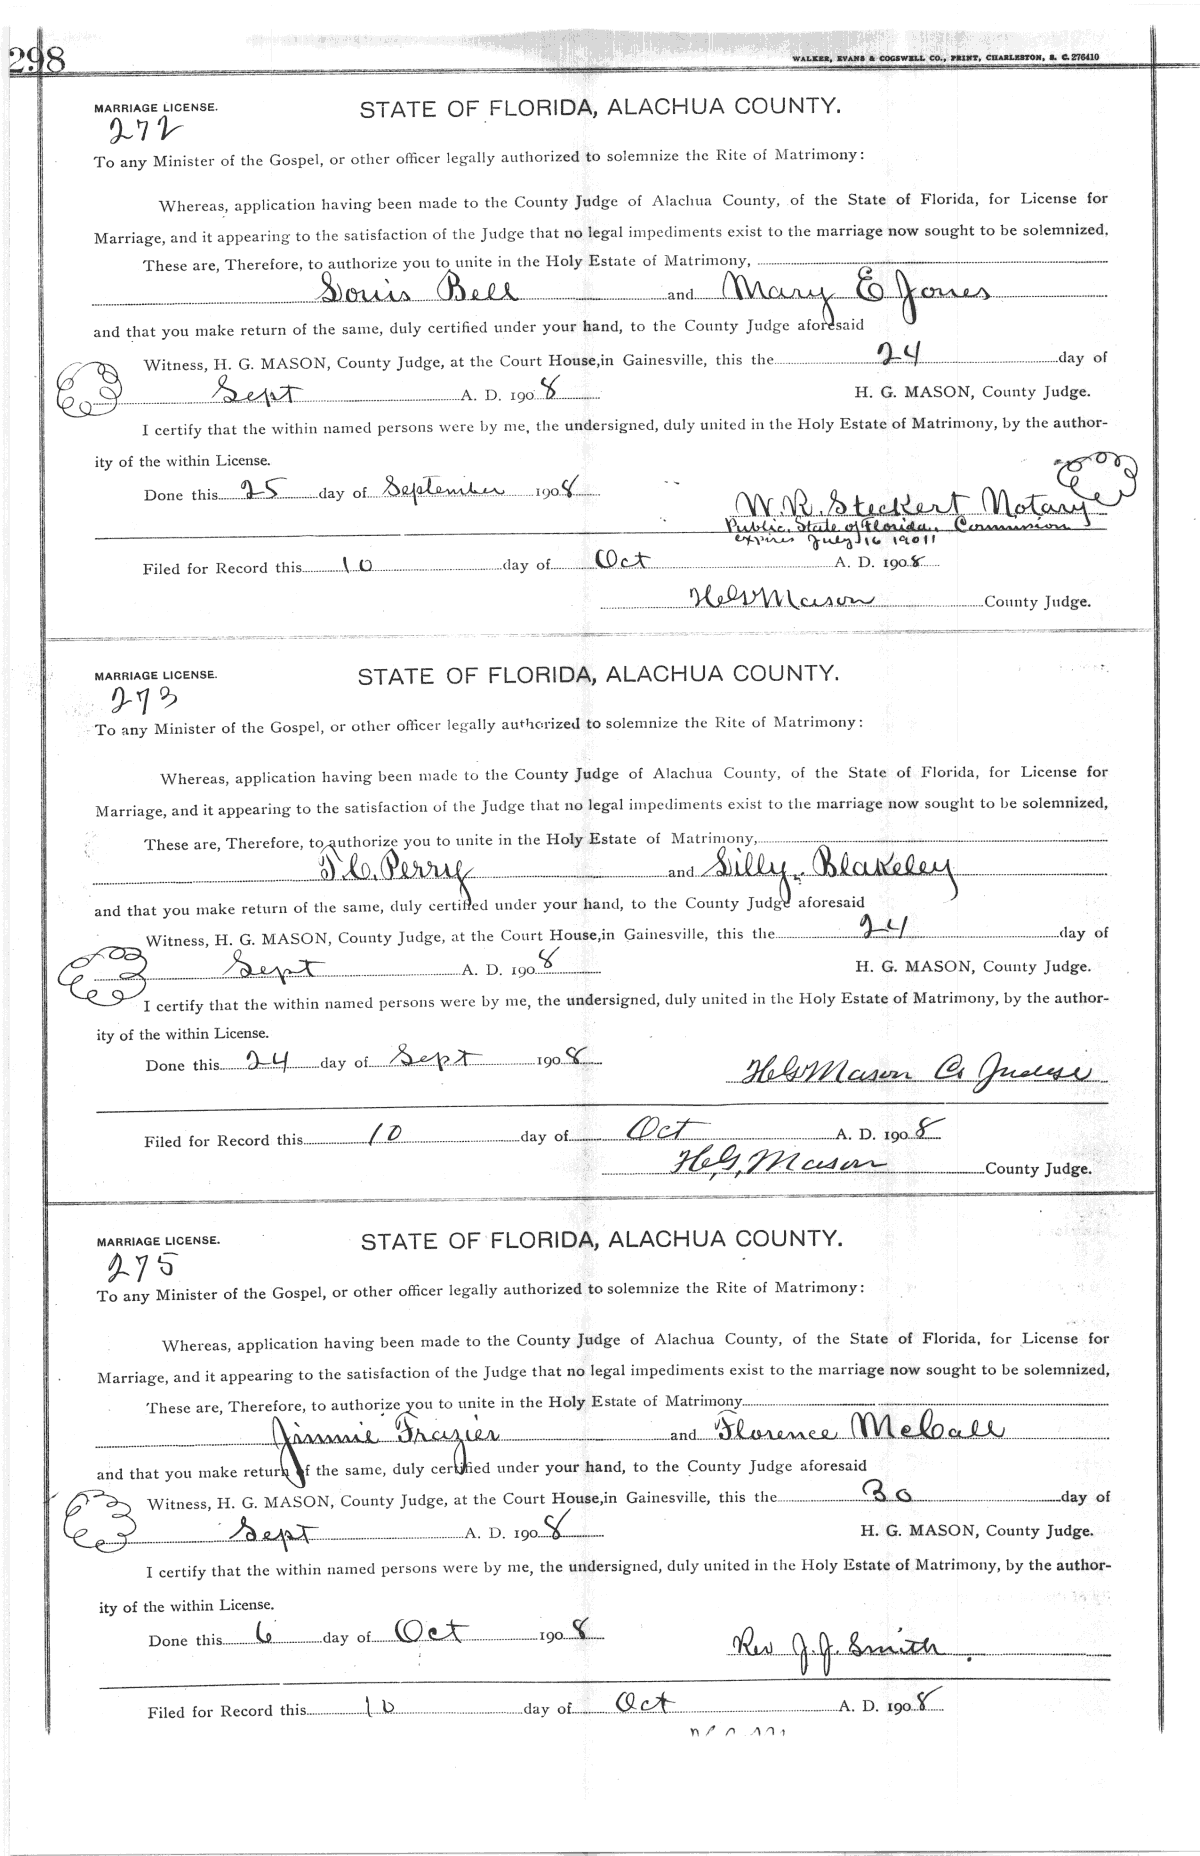 298
WALKER, EVANS & COGSWELL CO., PRINT, CHARLESTON, S. C. 276410
MARRIAGE LICENSE. STATE OF FLORIDA, ALACHUA COUNTY.
272
To any Minister of the Gospel, or other officer legally authorized to solemnize the Rite of Matrimony:
Whereas, application having been made to the County Judge of Alachua County, of the State of Florida, for License for
Marriage, and it appearing to the satisfaction of the Judge that no legal impediments exist to the marriage now sought to be solemnized,
These are, Therefore, to authorize you to unite in the Holy Estate of Matrimony,
Louis Bell and Mary E Jones
and that you make return of the same, duly certified under your hand, to the County Judge aforesaid
Witness, H. G. MASON, County Judge, at the Court House, in Gainesville, this the 24 day of
Sept A. D. 1908 H. G. MASON, County Judge.
I certify that the within named persons were by me, the undersigned, duly united in the Holy Estate of Matrimony, by the author-
ity of the within License.
Done this 25 day of September 1908
W. R. Steckert Notary
Public, State of Florida, Commission
expires July 16 19011
Filed for Record this 10 day of Oct A. D. 1908
H G Mason County Judge.
MARRIAGE LICENSE. STATE OF FLORIDA, ALACHUA COUNTY.
273
To any Minister of the Gospel, or other officer legally authorized to solemnize the Rite of Matrimony:
Whereas, application having been made to the County Judge of Alachua County, of the State of Florida, for License for
Marriage, and it appearing to the satisfaction of the Judge that no legal impediments exist to the marriage now sought to be solemnized,
These are, Therefore, to authorize you to unite in the Holy Estate of Matrimony,
T. C. Perry and Lilly Blakeley
and that you make return of the same, duly certified under your hand, to the County Judge aforesaid
Witness, H. G. MASON, County Judge, at the Court House, in Gainesville, this the 24 day of
Sept A. D. 1908 H. G. MASON, County Judge.
I certify that the within named persons were by me, the undersigned, duly united in the Holy Estate of Matrimony, by the author-
ity of the within License.
Done this 24 day of Sept 1908
H G Mason Co Judge
Filed for Record this 10 day of Oct A. D. 1908
H. G. Mason County Judge.
MARRIAGE LICENSE. STATE OF FLORIDA, ALACHUA COUNTY.
275
To any Minister of the Gospel, or other officer legally authorized to solemnize the Rite of Matrimony:
Whereas, application having been made to the County Judge of Alachua County, of the State of Florida, for License for
Marriage, and it appearing to the satisfaction of the Judge that no legal impediments exist to the marriage now sought to be solemnized,
These are, Therefore, to authorize you to unite in the Holy Estate of Matrimony
Jimmie Frazier and Florence McCall
and that you make return of the same, duly certified under your hand, to the County Judge aforesaid
Witness, H. G. MASON, County Judge, at the Court House, in Gainesville, this the 30 day of
Sept A. D. 1908 H. G. MASON, County Judge.
I certify that the within named persons were by me, the undersigned, duly united in the Holy Estate of Matrimony, by the author-
ity of the within License.
Done this 6 day of Oct 1908
Rev J. J. Smith.
Filed for Record this 10 day of Oct A. D. 1908